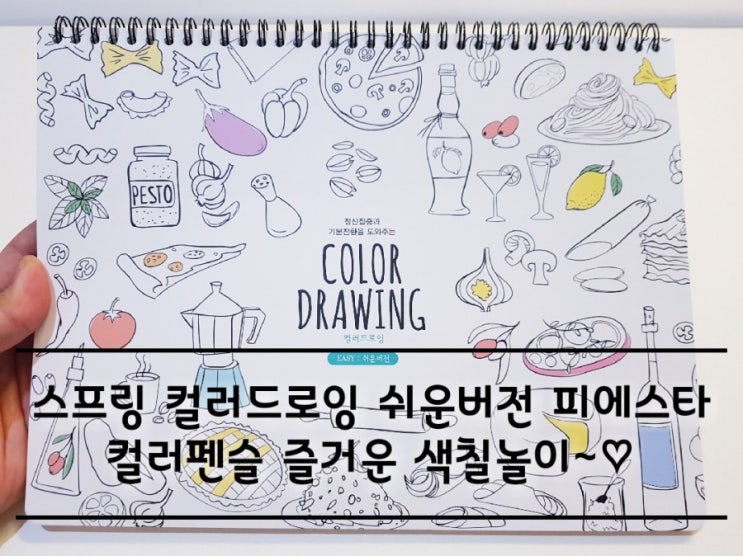 PESTO
정신집중과
기분전환을 도와주는
COLOR
DRAWING
컬러드로잉
EASY : 쉬운버전
스프링 컬러드로잉 쉬운버전 피에스타
컬러펜슬 즐거운 색칠놀이~♡